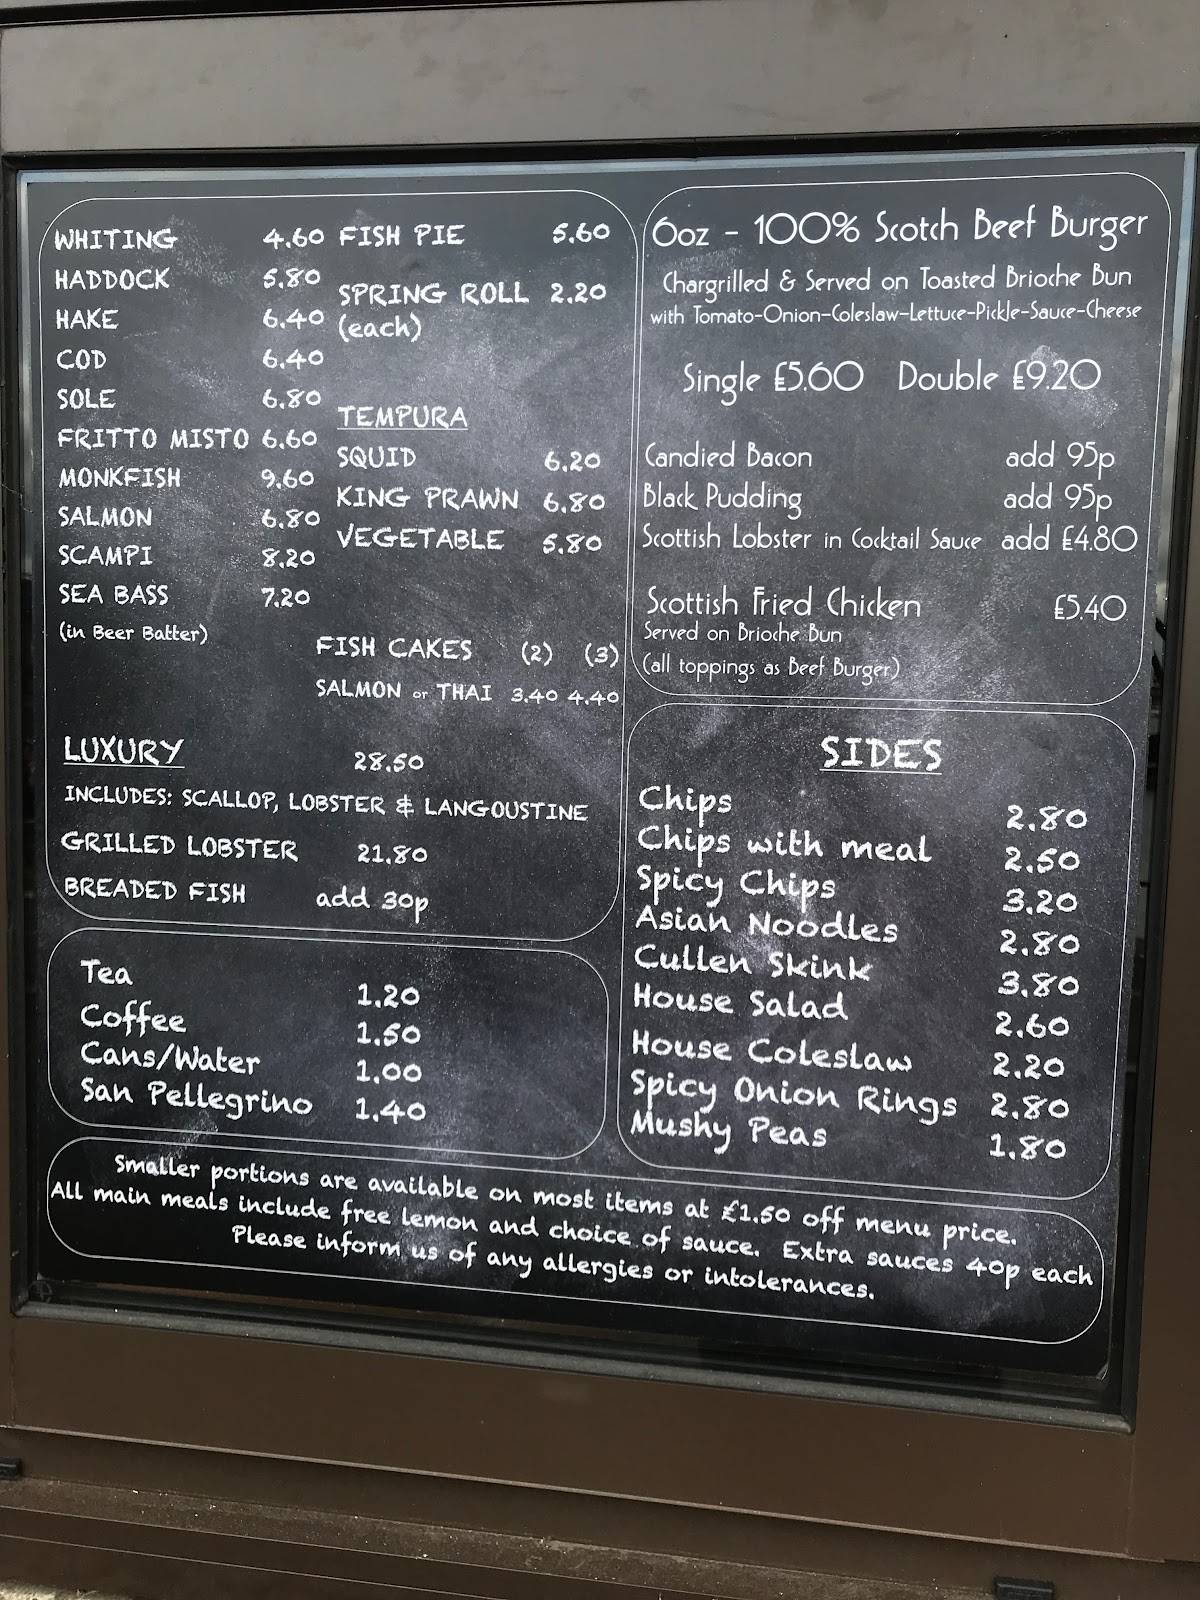 WHITING 4.60
HADDOCK 5.80
HAKE 6.40
COD 6.40
SOLE 6.80
FRITTO MISTO 6.60
MONKFISH 9.60
SALMON 6.80
SCAMPI 8.20
SEA BASS 7.20
(in Beer Batter)
FISH PIE 5.60
SPRING ROLL 2.20
(each)
TEMPURA
SQUID 6.20
KING PRAWN 6.80
VEGETABLE 5.80
FISH CAKES (2) (3)
SALMON or THAI 3.40 4.40
LUXURY 28.50
INCLUDES: SCALLOP, LOBSTER & LANGOUSTINE
GRILLED LOBSTER 21.80
BREADED FISH add 30p
Tea 1.20
Coffee 1.50
Cans/Water 1.00
San Pellegrino 1.40
6oz - 100% Scotch Beef Burger
Chargrilled & Served on Toasted Brioche Bun
with Tomato-Onion-Coleslaw-Lettuce-Pickle-Sauce-Cheese
Single £5.60 Double £9.20
Candied Bacon add 95p
Black Pudding add 95p
Scottish Lobster in Cocktail Sauce add £4.80
Scottish Fried Chicken £5.40
Served on Brioche Bun
(all toppings as Beef Burger)
SIDES
Chips 2.80
Chips with meal 2.50
Spicy Chips 3.20
Asian Noodles 2.80
Cullen Skink 3.80
House Salad 2.60
House Coleslaw 2.20
Spicy Onion Rings 2.80
Mushy Peas 1.80
Smaller portions are available on most items at £1.50 off menu price.
All main meals include free lemon and choice of sauce. Extra sauces 40p each
Please inform us of any allergies or intolerances.